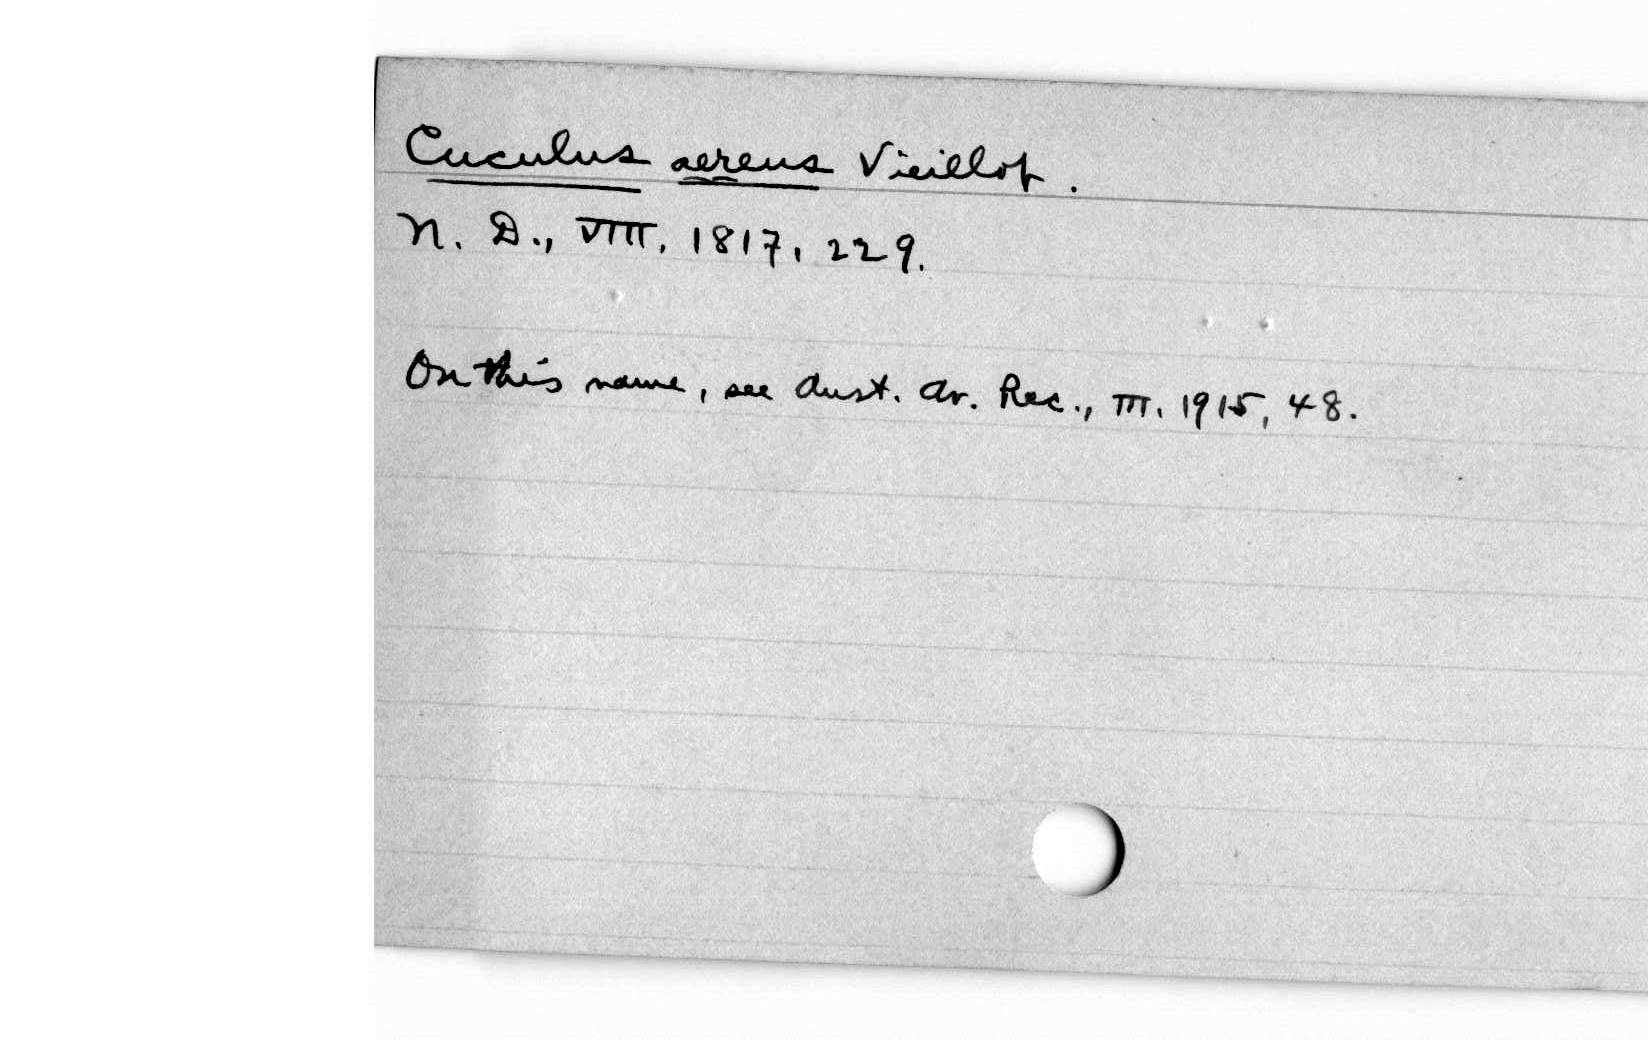 Cuculus aereus Vieillot.
N. D., VIII. 1817, 229.
On this name, see Aust. Av. Rec., III. 1915, 48.